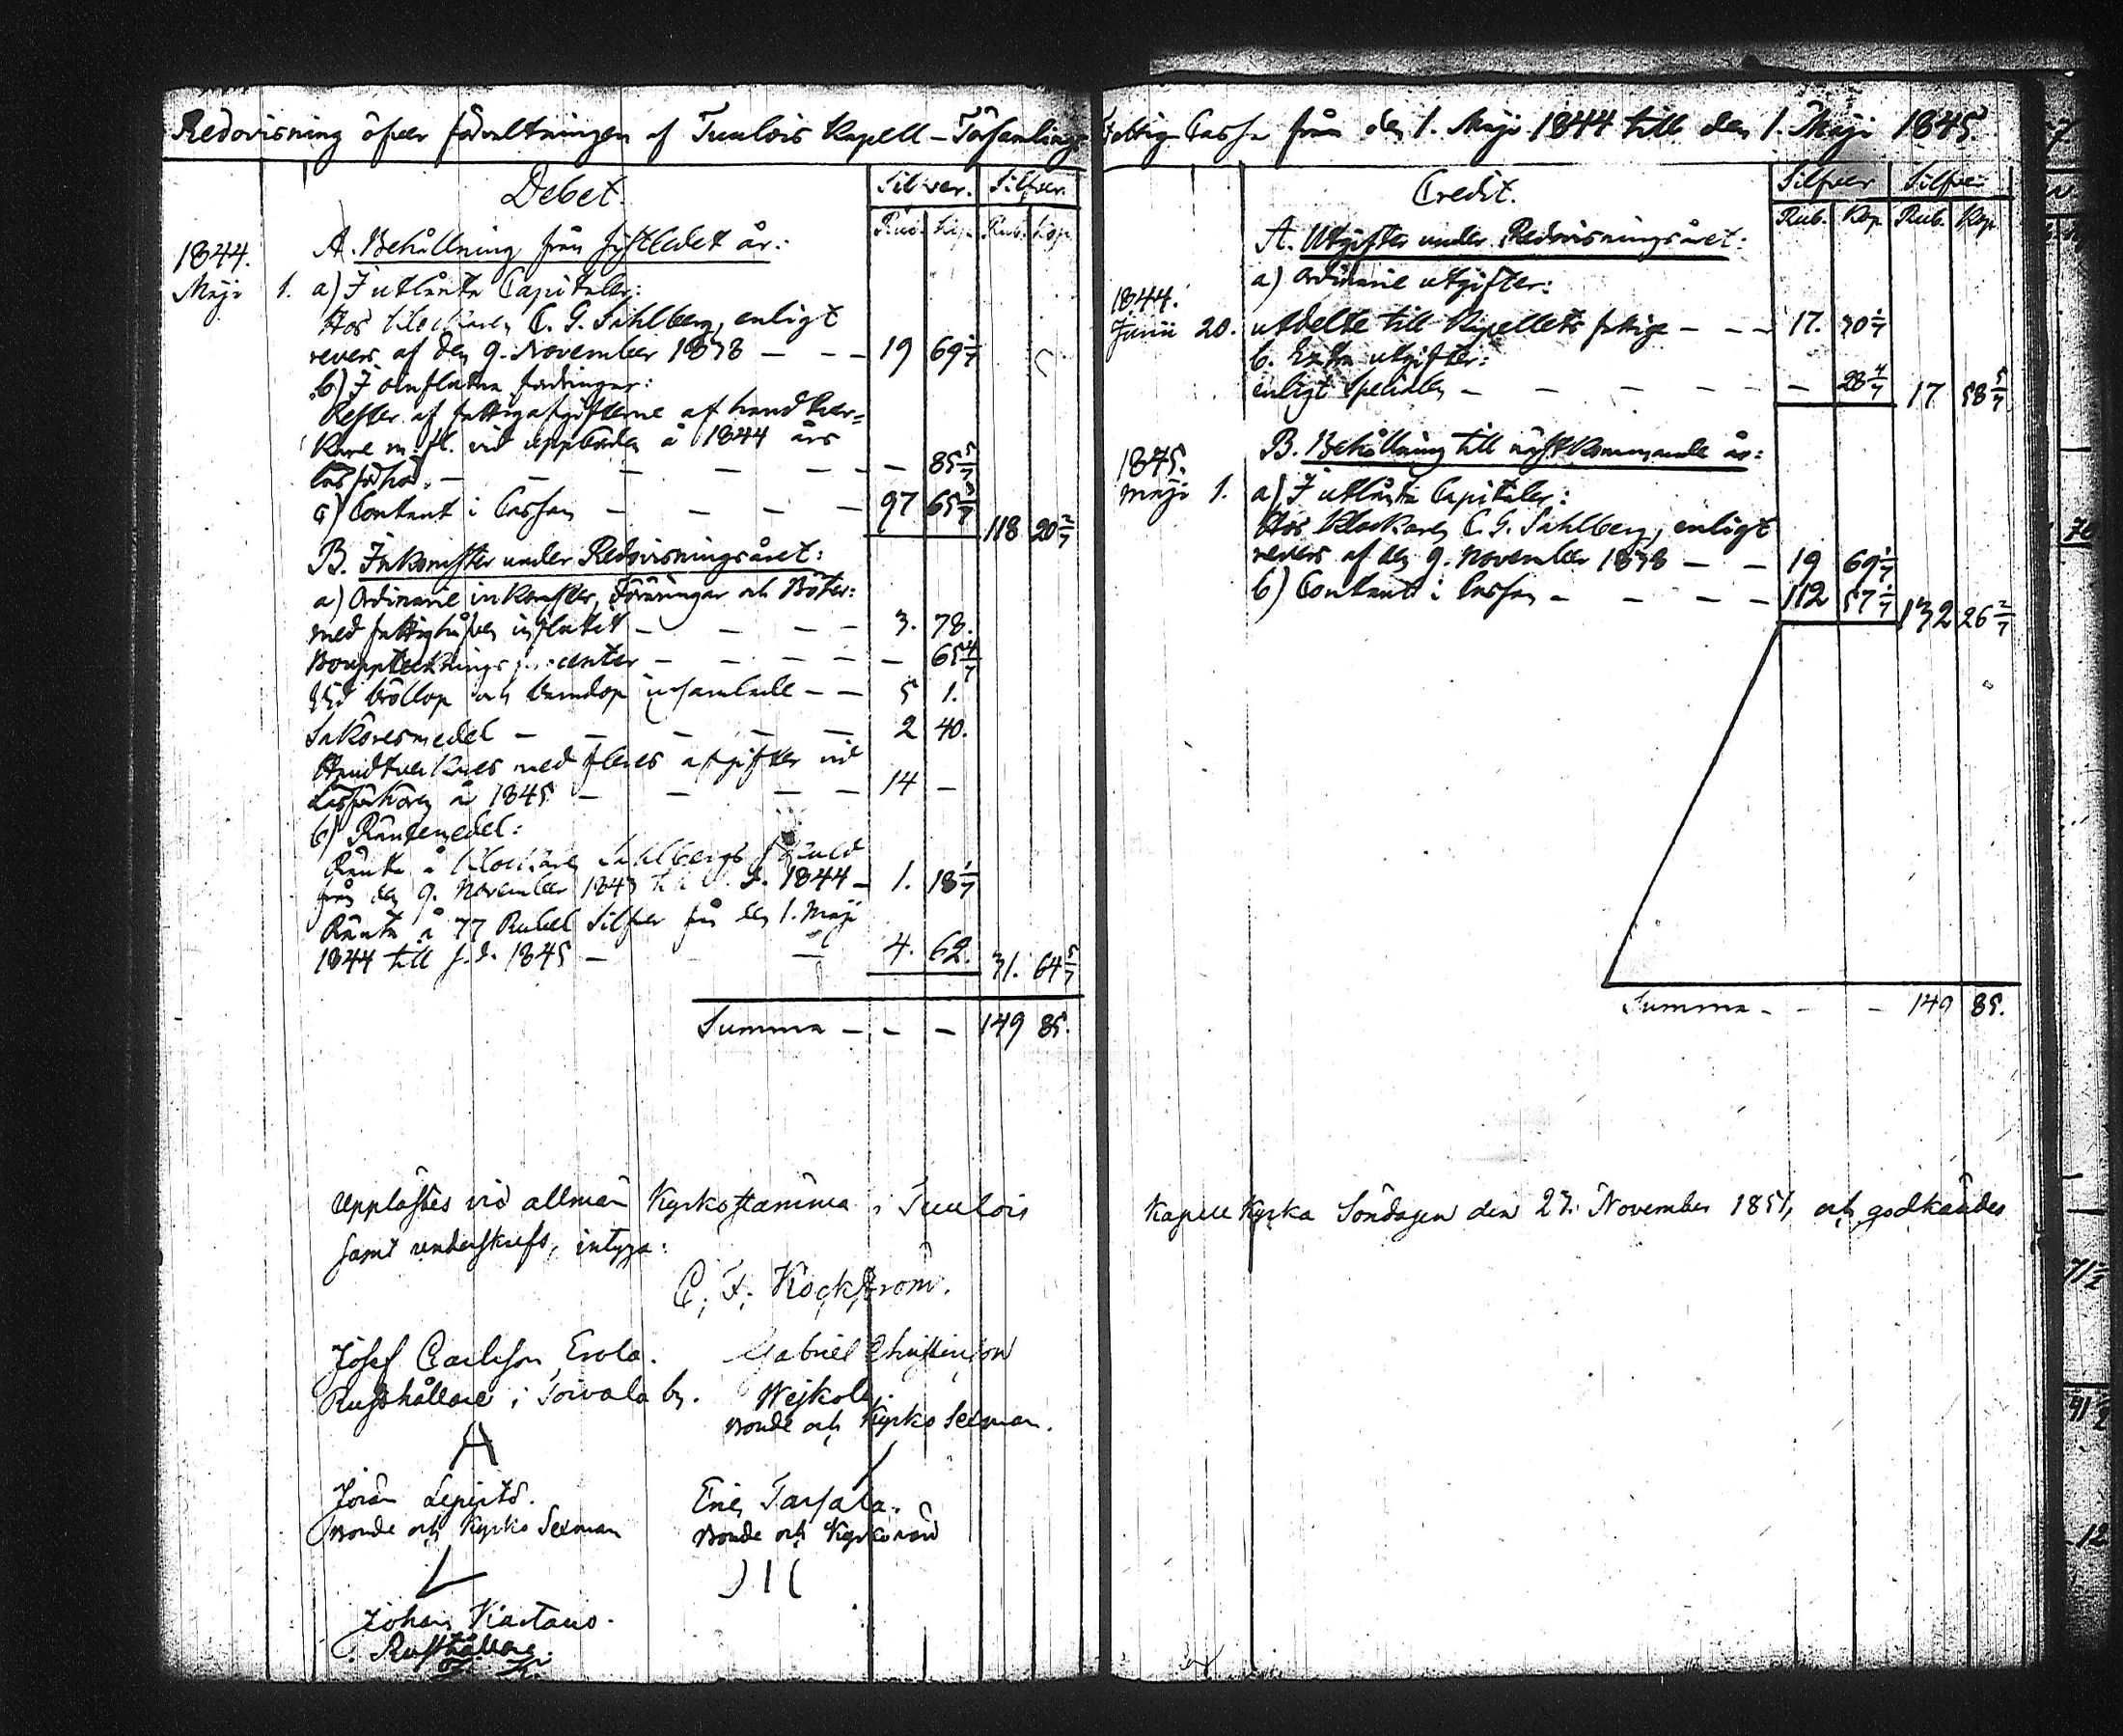 Redovisning öfver förvaltningen af Tuulois Kapell-Församlings Fattig-Cassa från den 1. Maji 1844 till den 1. Maji 1845
Debet.
Silfver. Silfver.
Rub. Kop. Rub. Kop.
A. Behållning från sistledet år:
1844.
Maji 1. a) I utlånta Capitaler:
Hos Klockaren C. G. Sahlberg, enligt
revers af den 9. November 1838 — — — 19 69 1/7
b) I oinflutna fordringar:
Rester af fattigafgifterne af handtver=
kare m. fl. vid uppbörden å 1844 års
läsförhör. — — — — — 85 5/7
c) Contant i Cassan — — — — 97 65 3/7 118 20 2/7
B. Inkomster under Redovisningsåret:
a) Ordinarie inkomster, Föräringar och Böter:
med fattighåfven influtit — — — — 3. 78.
Bouppteckningsprocenter — — — — — 65 4/7
Vid bröllop och barndop insamlade — — 5 1.
Saköresmedel — — — — — 2 40.
Handtverkares med fleres afgifter vid
Läsförhören år 1845 — — — — 14 —
b) Räntemedel:
Ränta å Klockaren Sahlbergs skuld
från den 9. November 1843 till s. d. 1844 — 1. 18 1/7
Ränta å 77 Rubel Silfver från den 1. Maji
1844 till s. d. 1845 — — 4. 62. 31. 64 5/7
Summa — — — 149 85.
Upplästes vid allmän Kyrkostämma i Tuulois
samt underskrefs, intyga:
C. F. Kockström.
Josef Carlsson Erola. Gabriel Christiansson
Rusthållare i Toivala by. Wejkola
Bonde och Kyrko Sexman.
Jöran Lepistö. Eric Tarsala.
Bonde och Kyrko Sexman Bonde och Kyrkovärd
Johan Kartano.
Rusthållare.
Credit.
Silfver Silfver
Rub. Kop Rub. Kop.
A. Utgifter under Redovisningsåret:
a) Ordinarie utgifter:
1844.
Junii 20. utdelte till Kapellets fattige — — — 17. 30 1/7
b. Extra utgifter:
enligt Specialen — — — — — — 28 4/7 17 58 5/7
B. Behållning till nästkommande år:
1845.
Maji 1. a) I utlånta Capitaler:
Hos Klockaren C. G. Sahlberg, enligt
revers af den 9. November 1838 — — 19 69 1/7
b) Contant i Cassan — — — — 112 57 1/7 132 26 2/7
Summa — — — 149 85.
Kapell Kyrka Söndagen den 23. November 1851, och godkändes